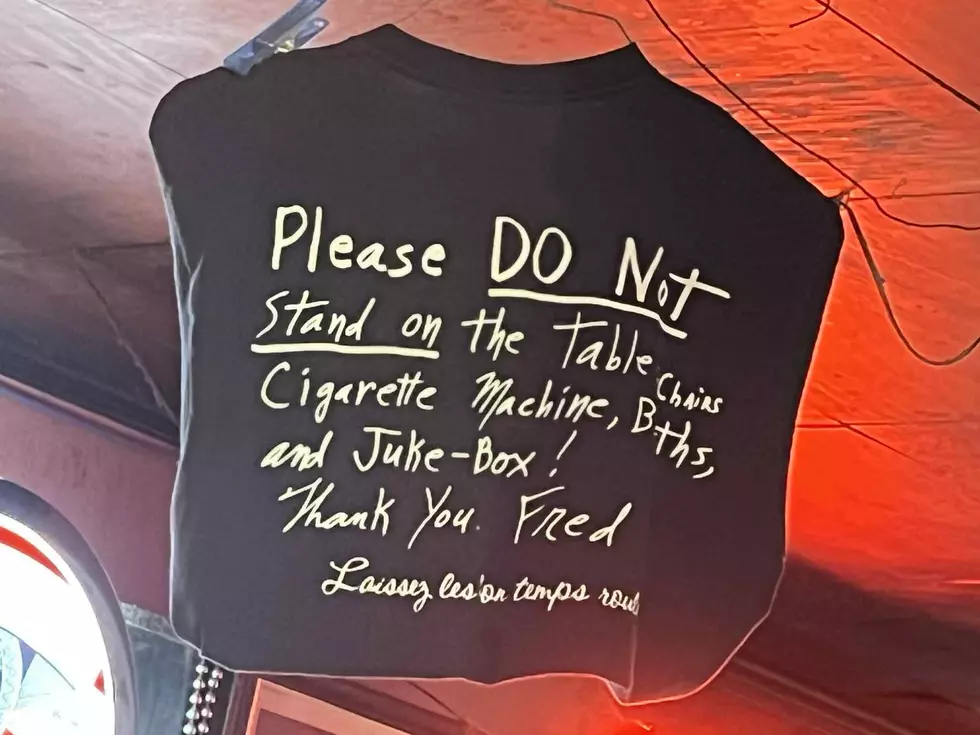 Please DO Not
Stand on the Table Chairs
Cigarette Machine, Bths,
and Juke-Box!
Thank You. Fred
Laissez les'on temps roul